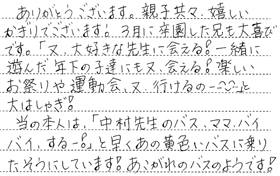 ありがとうございます。親子共々、嬉しい
かぎりでございます！3月に卒園した兄も大喜び
です。「又、大好きな先生に会える！一緒に
遊んだ年下の子達にも又、会える！楽しい
お祭りや運動会、又、行けるの〜〜」と
大はしゃぎ！
当の本人は、「中村先生のバス、ママ、バイ
バイ、するー！」と早くあの黄色いバスに乗り
たそうにしています！あこがれのバスのようです！